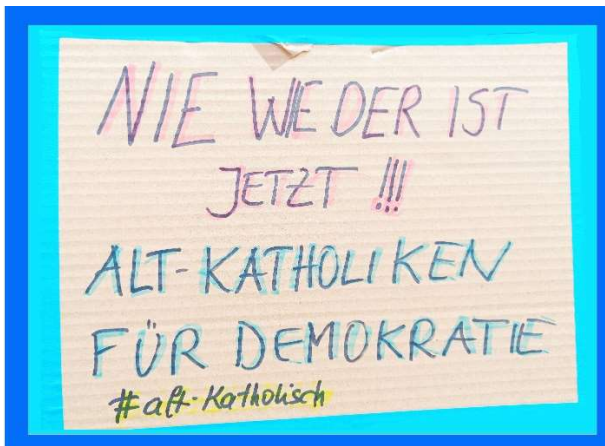 NIE WIEDER IST
JETZT !!!
ALT-KATHOLIKEN
FÜR DEMOKRATIE
#alt-Katholisch